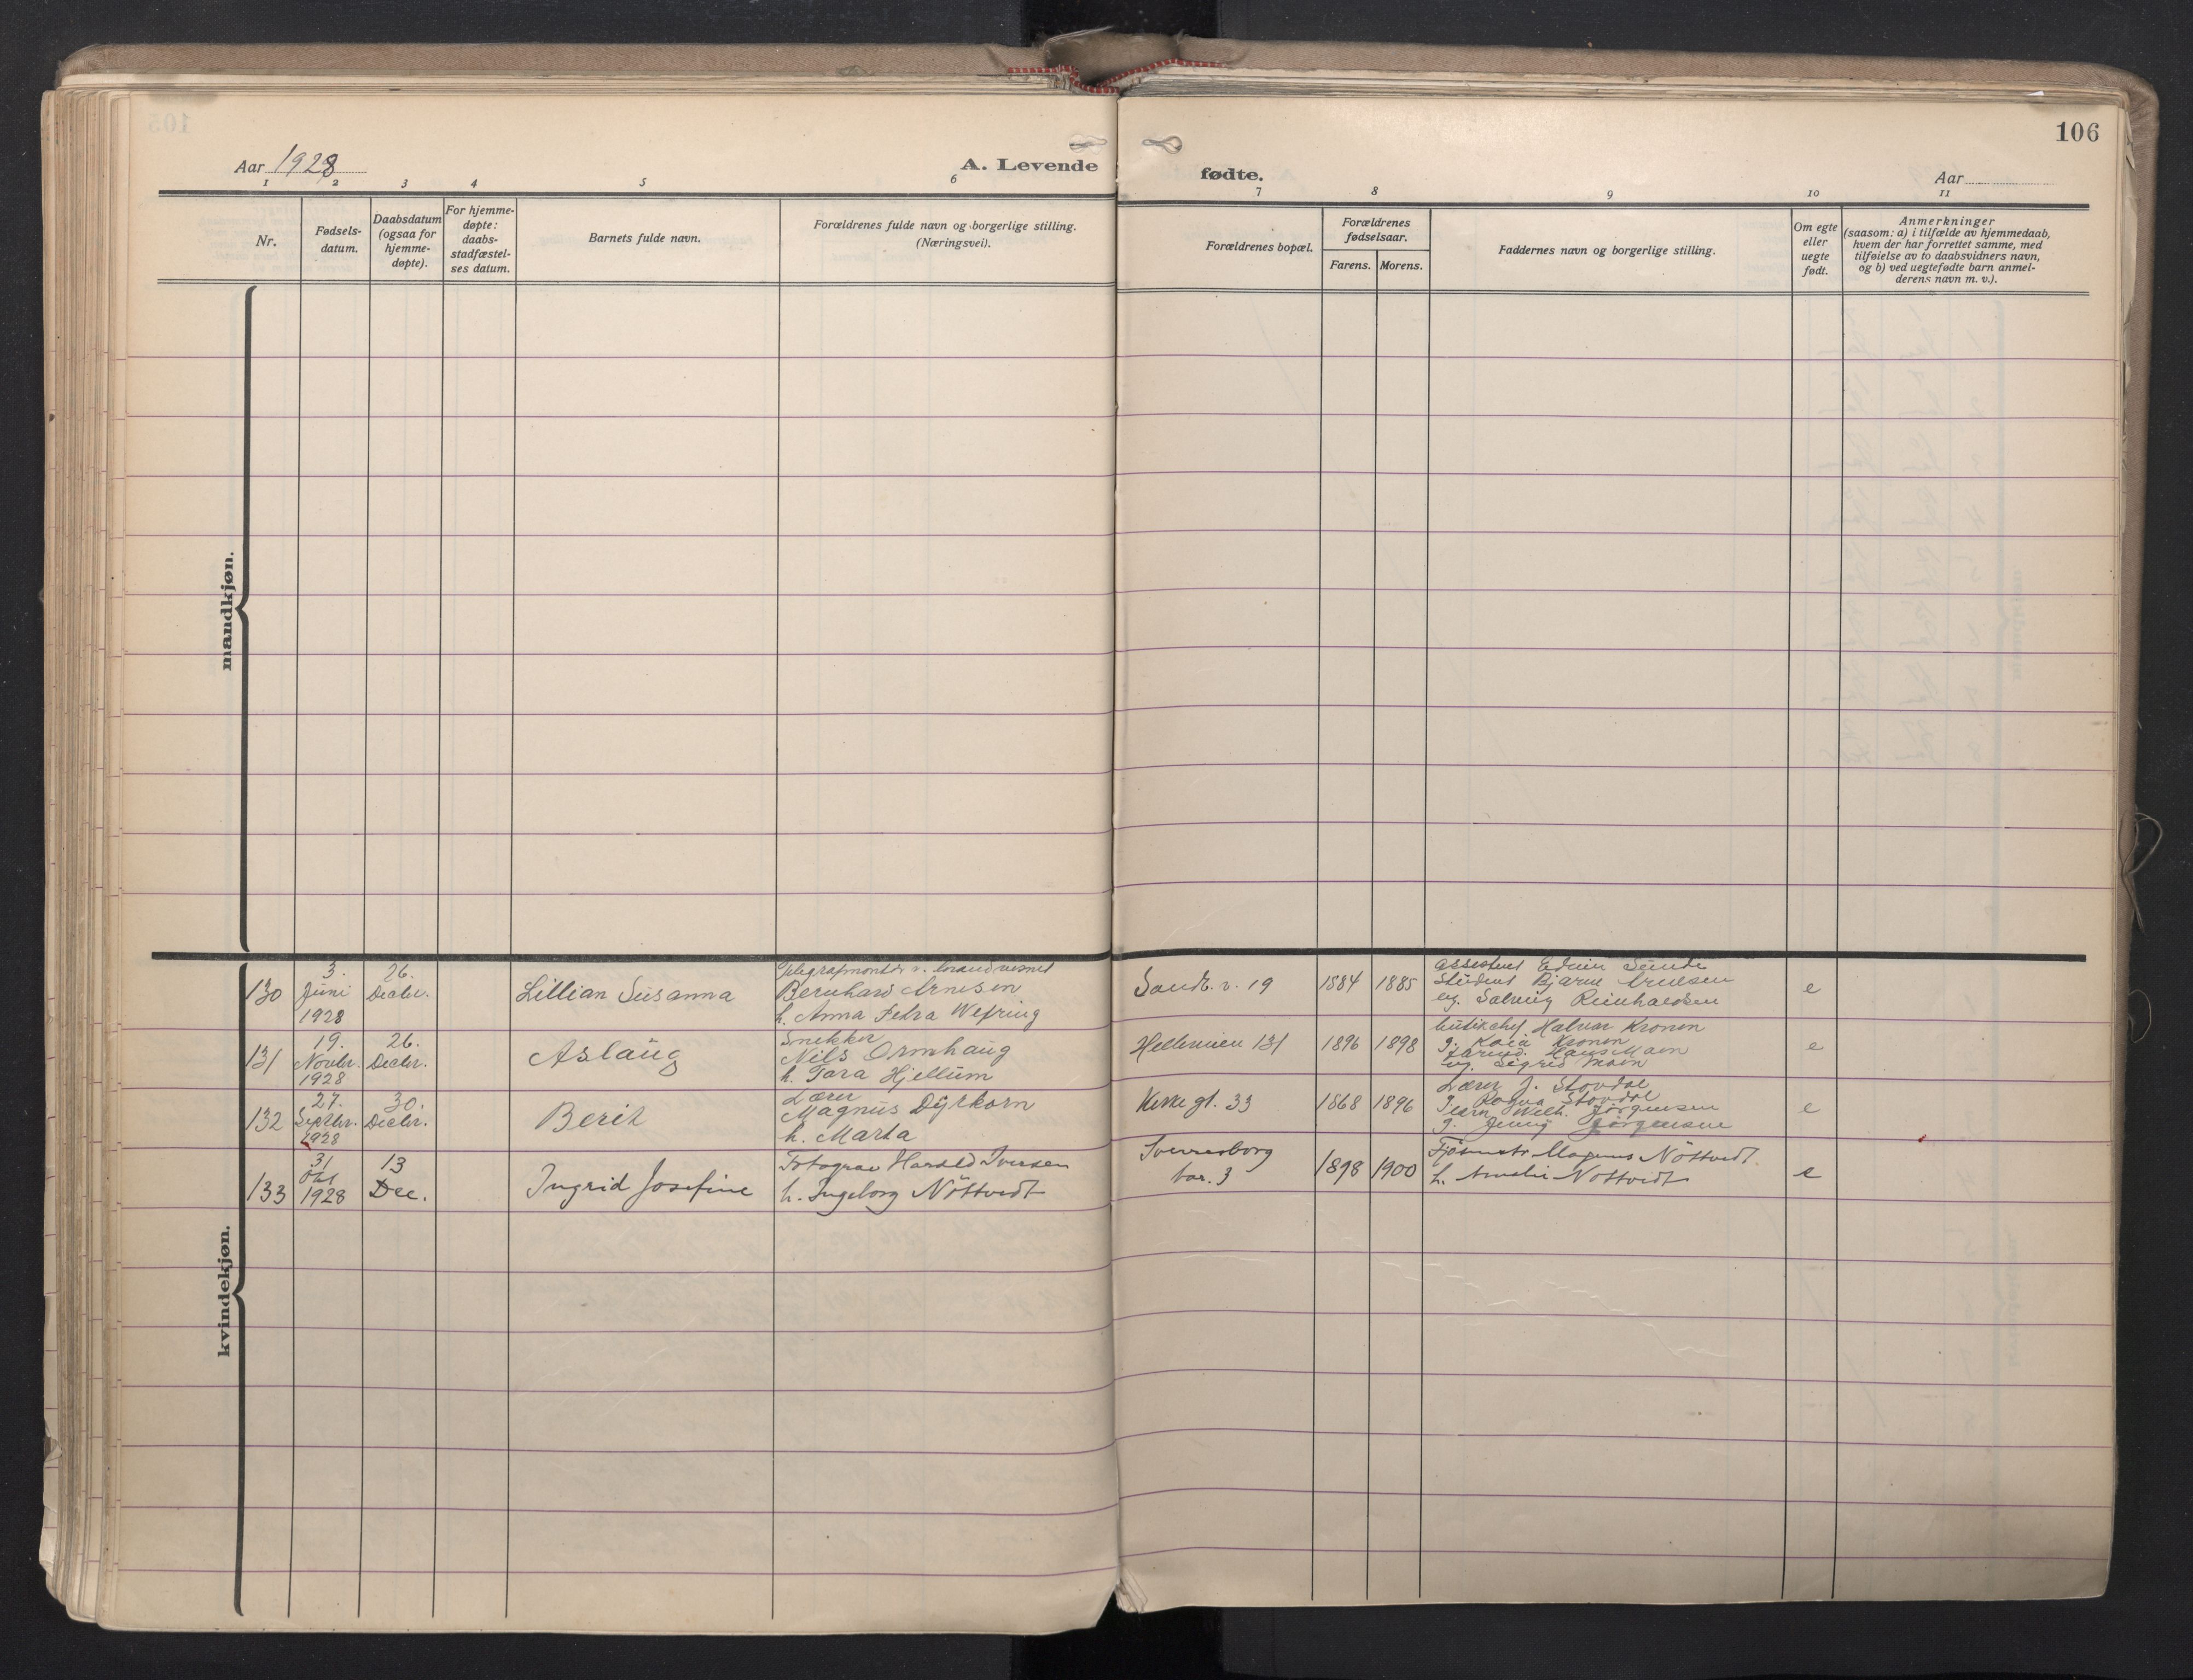 106
Aar 1928
A. Levende
fødte.
Aar
1 2 3 4 5 6 7 8 9 10 11
Nr.
Fødsels-
datum.
Daabsdatum
(ogsaa for
hjemme-
døpte).
For hjemme-
døpte:
daabs-
stadfæstel-
ses datum.
Barnets fulde navn.
Forældrenes fulde navn og borgerlige stilling.
(Næringsvei).
Forældrenes bopæl.
Forældrenes
fødselsaar.
Farens. Morens.
Faddernes navn og borgerlige stilling.
Om egte
eller
uegte
født.
Anmerkninger
(saasom: a) i tilfælde av hjemmedaab,
hvem der har forrettet samme, med
tilføielse av to daabsvidners navn,
og b) ved uegtefødte barn anmel-
derens navn m. v.).
mandkjøn.
kvindekjøn.
130
3.
Juni
1928
26.
Decbr.
Lillian Susanna
Telegrafmontør v. brandvesnet
Bernhard Arnesen
h. Anna Petra Wefring
Sandv. v. 19
1884
1885
assistent Edvin Sunde
Student Bjarne Arnesen
ug. Solveig Reinhardsen
e
131
19.
Novbr.
1928
26.
Decbr.
Aslaug
Snekker
Nils Ormhaug
h. Tora Hjellum
Helleveien 131
1896
1898
butikchef Halvar Kronen
g. Kaia Kronen
Hans Moen
ug. Sigrid Moen
e
132
27.
Septbr.
1928
30.
Decbr.
Berit
Lærer
Magnus Dyrkorn
h. Marta
Kirkegt. 33
1868
1896
Lærer J. Stovdal
g. Ragna Stovdal
Wilh. Jörgensen
g. Jenny Jörgensen
e
133
31
Okt
1928
13
Dec.
Ingrid Josefine
Fotograv Harald Iversen
h. Ingeborg Nöttvedt
Sverresborg
ter. 3
1898
1900
Magnus Nöttvedt
h. Amalie Nöttvedt
e